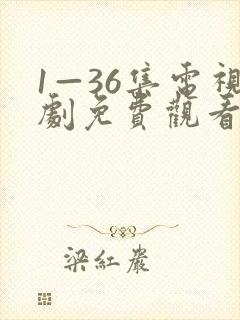 1—36集電視
劇免費觀看
梁紅巖